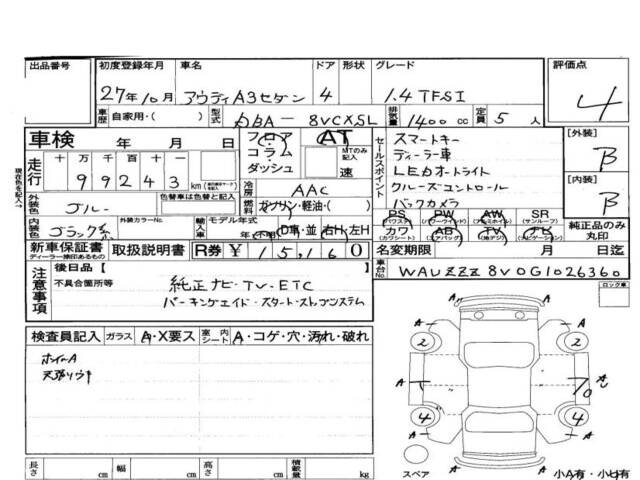 出品番号 初度登録年月 車名 ドア 形状 グレード 評価点
27年10月 アウディA3セダン 4 1.4 TFSI 4
車歴 自家用・( ) 型式 DBA-8VCXSL 排気量 1400cc 定員 5人
車検 年 月 日 フロア コラム ダッシュ AT MTのみ記入 速
セールスポイント スマートキー
ディーラー車
LEDオートライト
クルーズコントロール
バックカメラ
[外装] B
[内装] B
現在色を記入→
走行 十 万 千 百 十 一
99243km
冷房 AAC
外装色 ブルー 色替車は色替と記入 燃料 ガソリン・軽油・( )
内装色 ブラック系 外装カラーNo. 輸入車 モデル年式 年・不明 D車・並 右H・左H
PS PW AW SR
(パワステ) (パワーウインドウ) (アルミホイル) (サンルーフ)
カワ AB TV ナビ
(カワシート) (エアバッグ) (地デジ) (ナビゲーション)
純正品のみ丸印
新車保証書 ディーラー捺印あるもの 取扱説明書 R券 ¥15,160 名変期限 月 日迄
注意事項 後日品【 】
不具合箇所等 純正ナビ・TV・ETC
パーキングエイド・スタートストップシステム
車台No. WAUZZZ8V0G1026360
ロック車
検査員記入 ガラス A・X要ス 室内シート A・コゲ・穴・汚れ・破れ
ホイールA
天張リウキ
A A
2 2
A A
A A
4 4
A A
スペア 小A有・小U有
長さ cm 幅 cm 高さ cm 積載量 kg